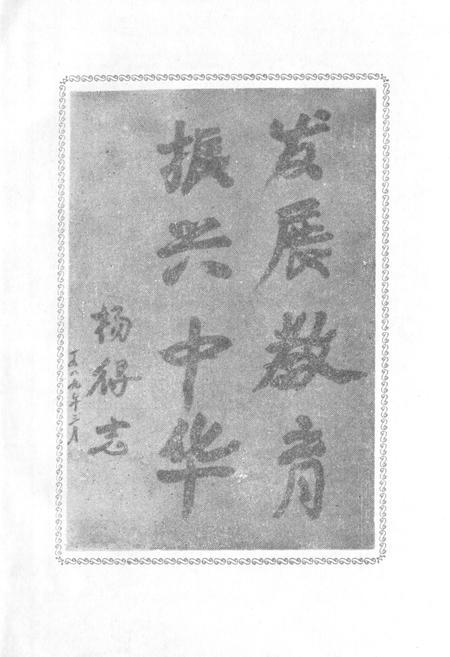 发展教育
振兴中华
杨得志
八九年三月